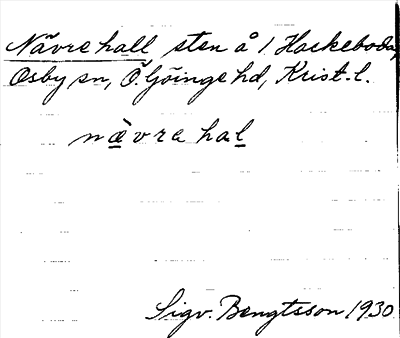 Nävrehall sten å 1 Hackeboda,
Osby sn, Ö. Göinge hd, Krist. l.
nævre hal
Sigv. Bengtsson 1930